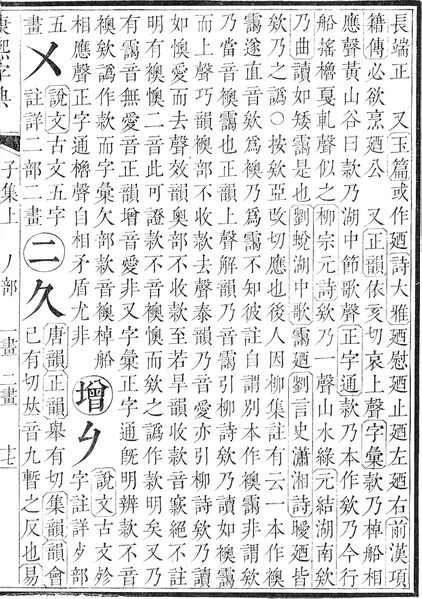 長端正 又玉篇或作廼詩大雅廼慰廼止廼左廼右前漢項
籍傳必欲烹廼公 又正韻依亥切哀上聲字彙款乃棹船相
應聲黃山谷曰款乃湖中節歌聲正字通款乃本作欸乃今行
船搖櫓戛軋聲似之柳宗元詩欸乃一聲山水綠元結湖南欸
乃曲讀如矮靄是也劉蛻湖中歌靄廼劉言史瀟湘詩曖廼皆
欸乃之譌○按欸亞改切應也後人因柳集註有云一本作襖
靄遂直音欸爲襖乃爲靄不知彼註自謂別本作襖靄非謂欸
乃當音襖靄也正韻上聲解韻乃音靄引柳詩欸乃讀如襖靄
而上聲巧韻襖部不收款去聲泰韻乃音愛亦引柳詩欸乃讀
如懊愛而去聲效韻奧部不收款至若旱韻收款音窾絕不註
明有襖懊二音此可證款不音襖懊而欸之譌作款明矣又乃
有靄音無愛音正韻增音愛非又字彙正字通旣明辨款不音
襖欸譌作款而字彙欠部款音襖棹船
相應聲正字通櫓聲自相矛盾尤非
增 𠂈
說文古文殄
字註詳歹部
五
畫
㐅
說文古文五字
註詳二部二畫
二 久
唐韻正韻舉有切集韻韻會
已有切𠀤音九暫之反也易
康熙字典 子集上 丿部 一畫 二畫 十七